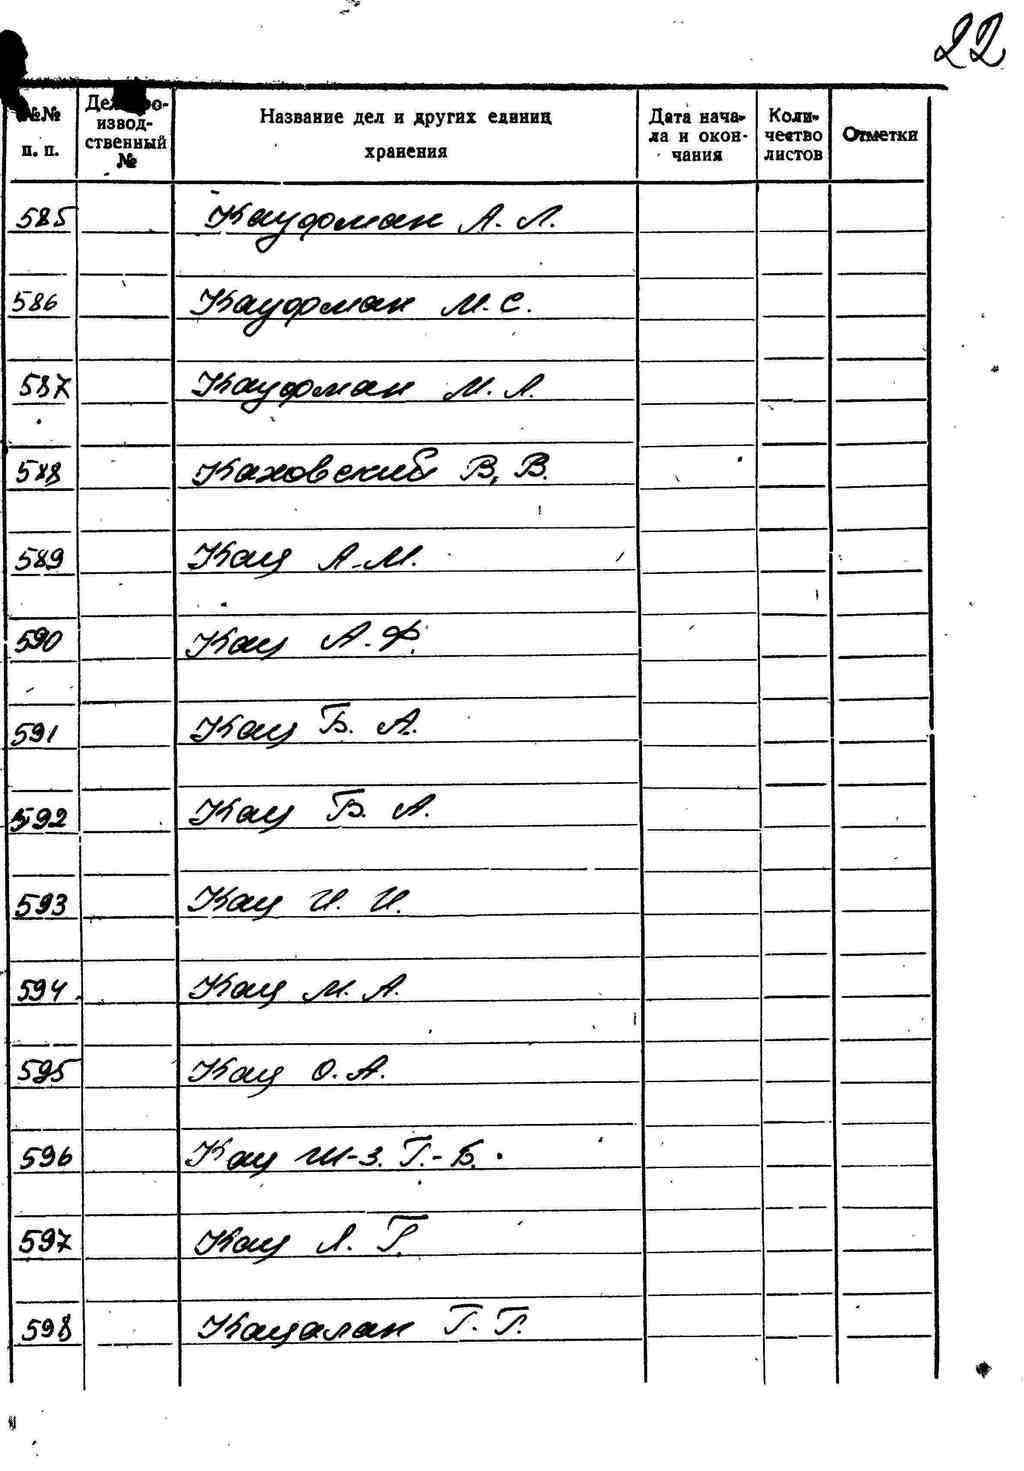 22
№№ п. п.
Делопроизводственный №
Название дел и других единиц хранения
Дата начала и окончания
Количество листов
Отметки
585 Кауфман А. Л.
586 Кауфман М. С.
587 Кауфман М. Л.
588 Каховский В. В.
589 Кац А. М.
590 Кац А. Ф.
591 Кац Б. А.
592 Кац Б. А.
593 Кац И. И.
594 Кац М. А.
595 Кац О. А.
596 Кац Ш-З. Г.-Б.
597 Кац Л. Г.
598 Кацалан Г. Г.